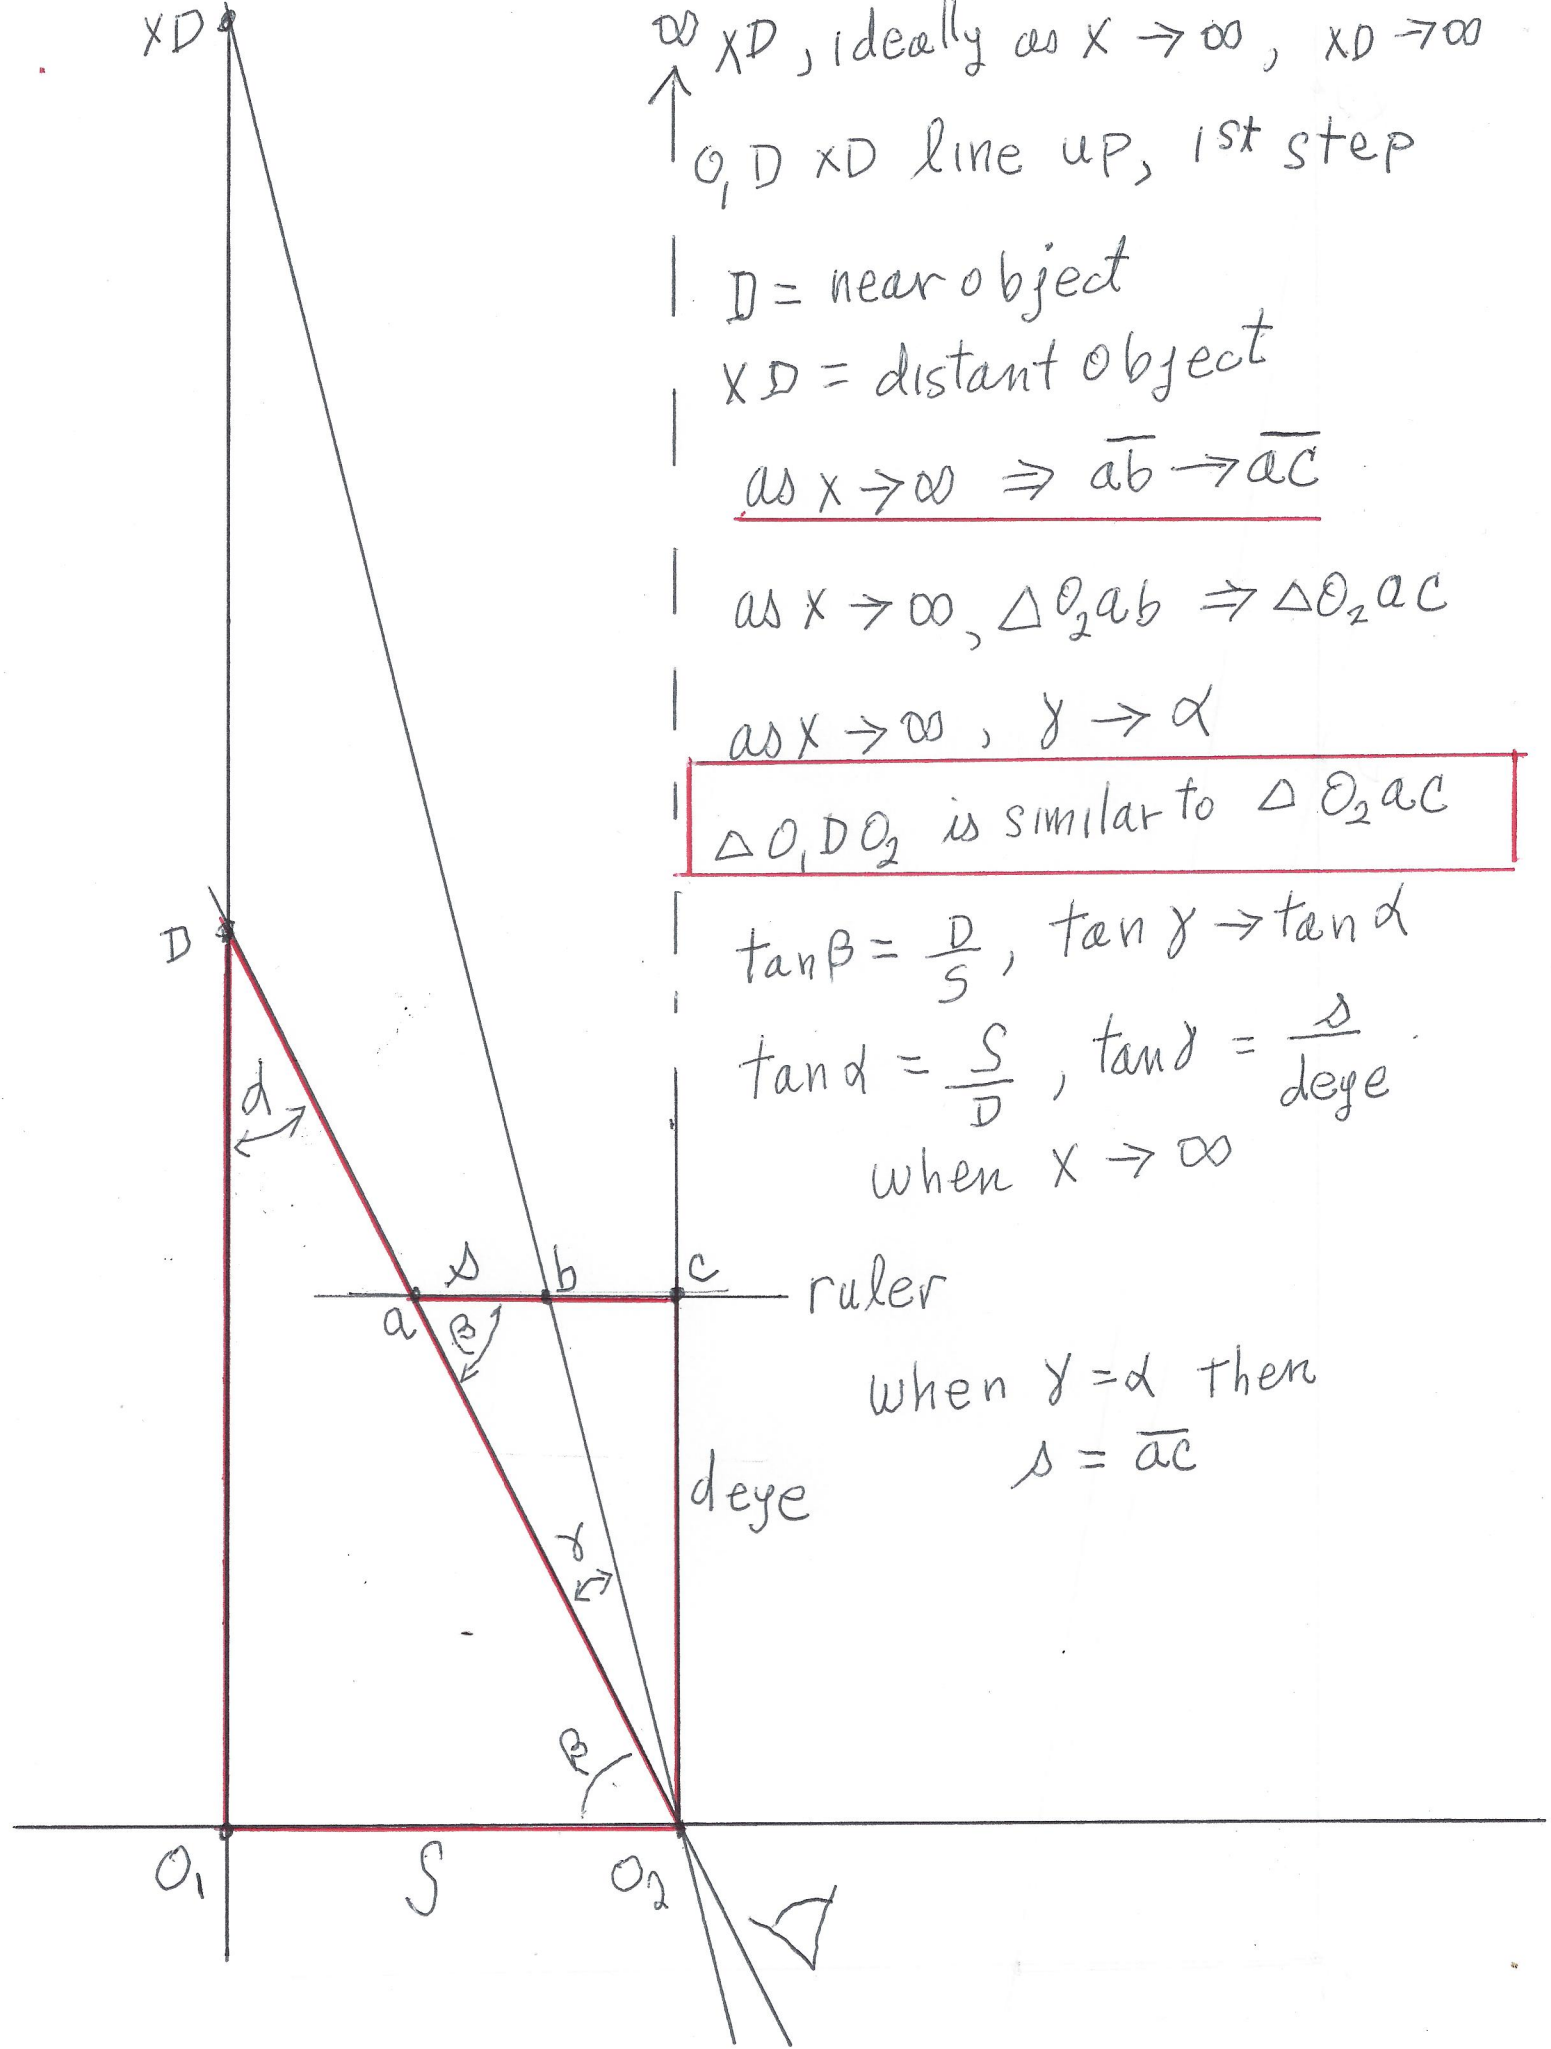 XD
∞ XD, ideally as X → ∞, XD → ∞
O₁ D XD line up, 1st step
D = near object
XD = distant object
as X → ∞ ⇒ a̅b̅ → a̅c̅
as X → ∞, △O₂ab ⇒ △O₂ac
as X → ∞, γ → α
△O₁DO₂ is similar to △O₂ac
D
tanβ = D/S, tanγ → tanα
α
tanα = S/D, tanγ = s/deye
when X → ∞
s b c ruler
a β
when γ = α then
s = a̅c̅
deye
γ
β
O₁ S O₂